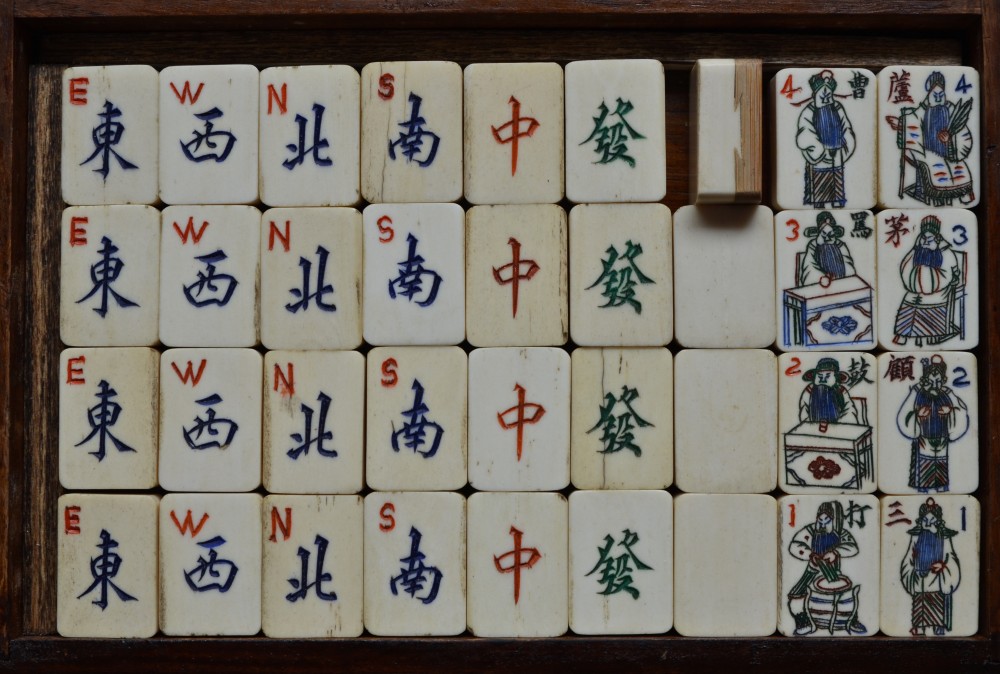 E 東 W 西 N 北 S 南 中 發 4 曹 蘆 4
E 東 W 西 N 北 S 南 中 發 3 罵 茅 3
E 東 W 西 N 北 S 南 中 發 2 鼓 顧 2
E 東 W 西 N 北 S 南 中 發 1 打 三 1